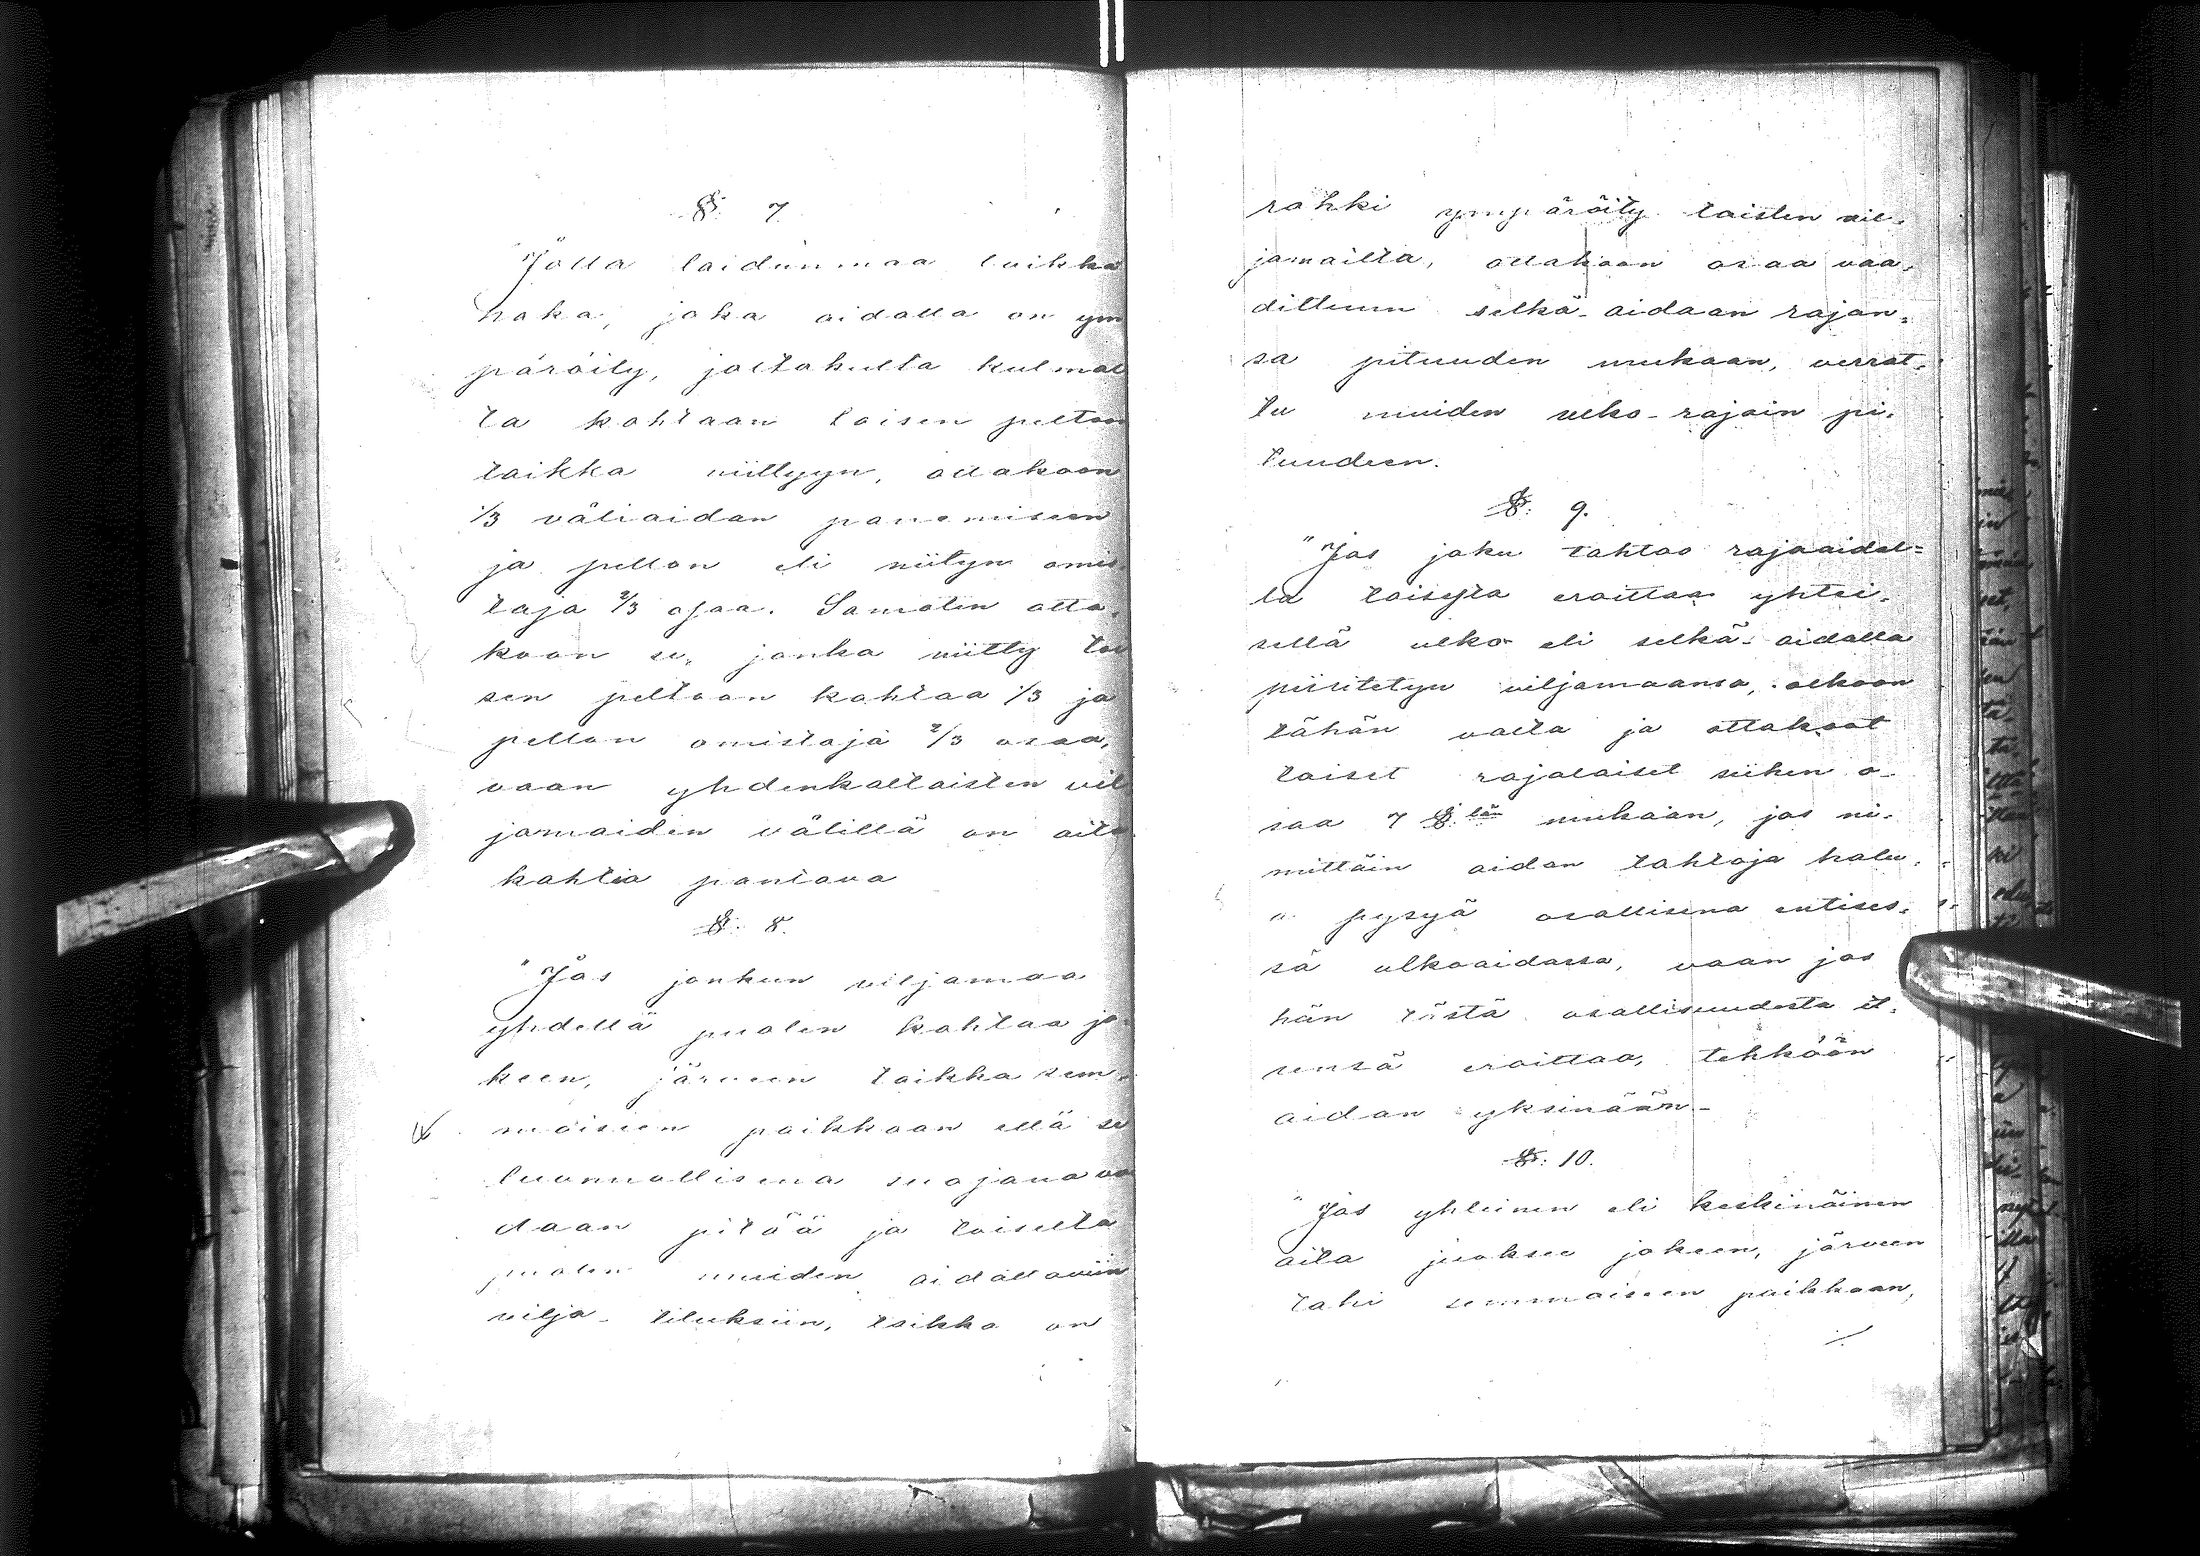 §. 7
"Jolla laidunmaa taikka
haka, joka aidalla on ym
päröity, joltakulta kulmal
ta kohtaan toisen peltoon
taikka niittyyn, ottakoon
1/3 väliaidan panemiseen
ja pellon eli niityn omis
taja 2/3 osaa. Samaten otta-
koon se, jonka niitty toi
sen peltoon kohtaa 1/3 ja
pellon omistaja 2/3 osaa,
vaan yhdenkaltaisten vil
jamaiden välillä on aita
kahtia pantava
§. 8.
"Jos jonkun viljamaa
yhdellä puolen kohtaa jo-
keen, järveen taikka sem-
moiseen paikkaan että se
luonnollisena suojana voi
daan pitää ja toiselta
puolen muiden aidattaviin
vilja- tiluksiin, taikka on
rahki ympäröity toisten vil-
jamailta, ottakoon osaa vaa-
dittuun selkä-aidaan rajan-
sa pituuden mukaan, verrat-
tu muiden ulko-rajain pi-
tuudeen.
§. 9.
"Jos joku tahtoo rajaaidal-
la toisesta eroittaa yhtei-
sellä ulko- eli selkä-aidalla
piiritetyn viljamaansa, olkoon
tähän valta ja ottakoot
toiset rajalaiset siihen o-
saa 7 §:län mukaan, jos ni-
mittäin aidan tahtoja halu-
a pysyä osallisena entises-
sä ulkoaidassa, vaan jos
hän tästä osallisuudesta it-
sensä eroittaa, tehköön
aidan yksinään-
§. 10.
"Jos yhteinen eli keskinäinen
aita juoksee jokeen, järveen
tahi semmoiseen paikkaan,
./.